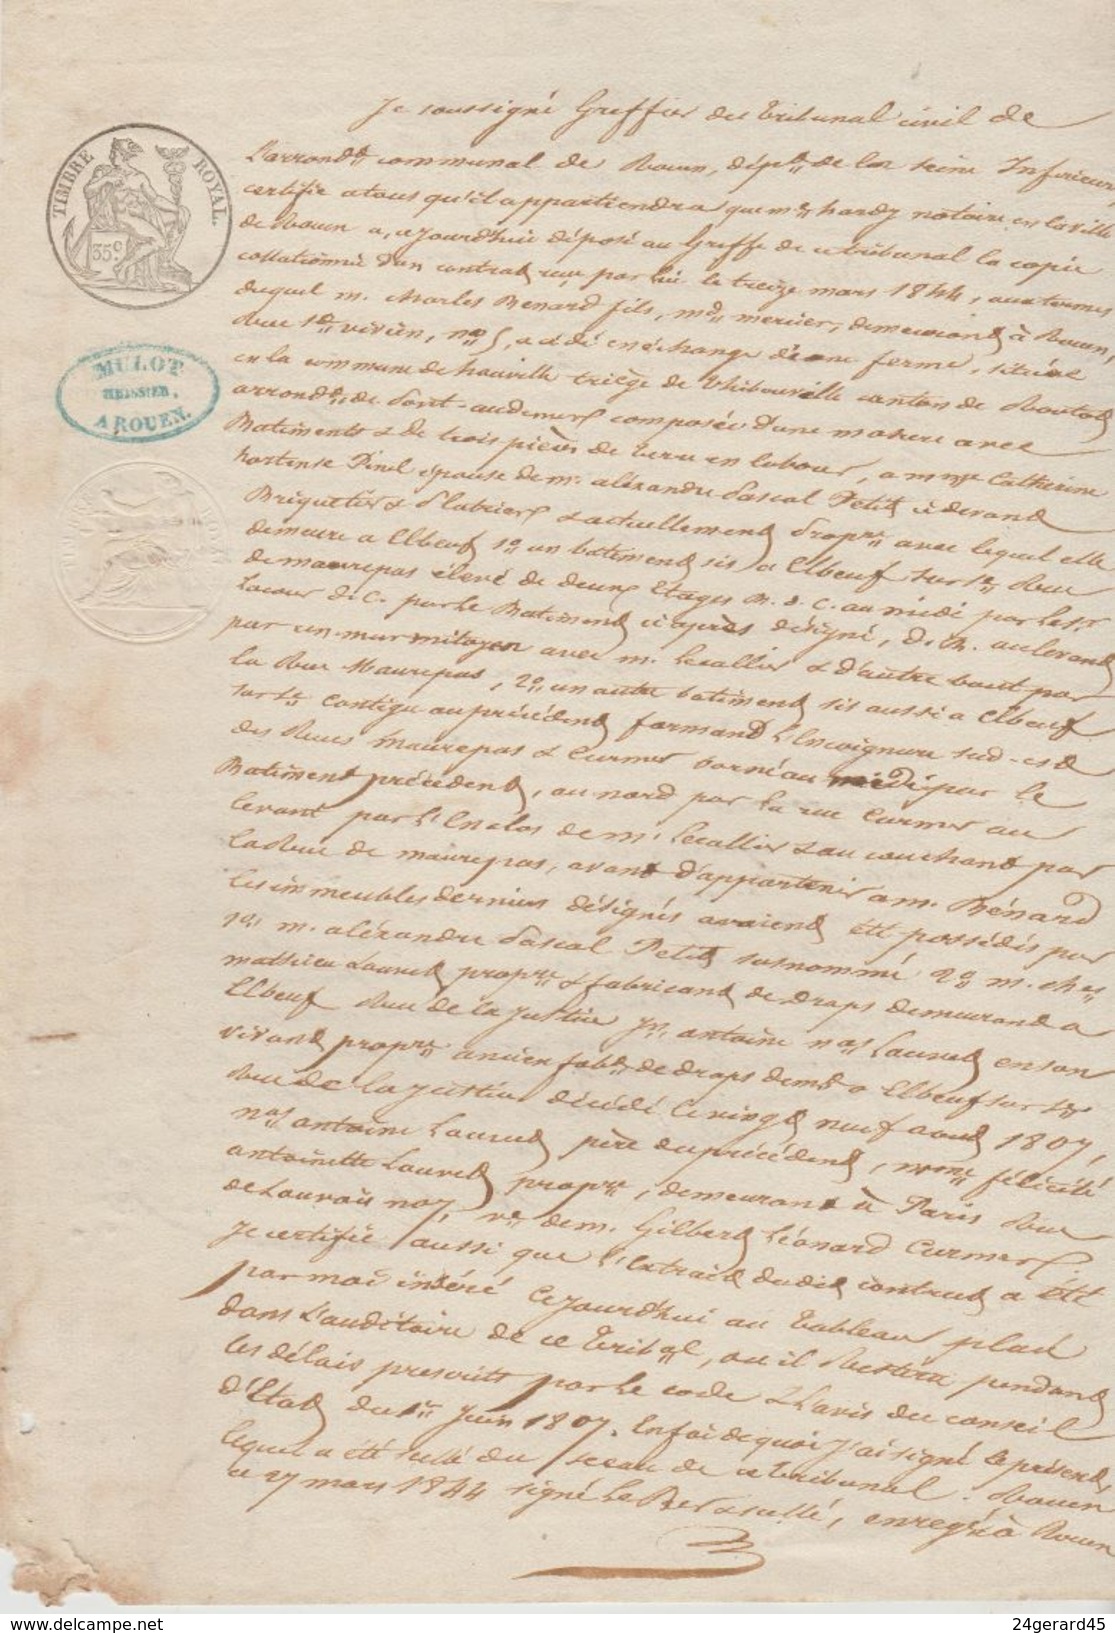 TIMBRE ROYAL.
35c.
MULOT
HUISSIER,
A ROUEN.
Je soussigné Greffier du tribunal civil de
L'arrondt communal de Rouen, dépt de la Seine Inférieure,
certifie a tous qu'il appartiendra que me hardy notaire en la ville
de Rouen a, cejourd'hui déposé au Greffe de ce tribunal la copie
collationnée d'un contrat reçu par lui le treize mars 1844, aux termes
duquel m. Charles Benard fils, md mercier, demeurant à Rouen,
Rue St vivien, no 5, a cédé en échange d'une ferme, située
en la commune de hauville triège de thibouville canton de Routot
arrondt de Pont-audemer composée d'une masure avec
Batiments & de trois pièces de terre en labour, a mme Catherine
hortense Pinel épouse de m. aléxandre Pascal Petit ci devant
Briquetier & Platrier & actuellement Propre avec lequel elle
demeure a Elbeuf 1o un batiment sis a Elbeuf sur se Rue
de maurepas élevé de deux Etages B. d. C. au midi par les r
Lacour d. C. par le Batiment ci après désigné, d. B. au levant
par un mur mitoyen avec m. Lecallier & d'autre bout par
la Rue Maurepas, 2o un autre batiment sis aussi a Elbeuf
sur se contigu au précédent formant l'Encoignure sud-est
des Rues maurepas & Curmer borné au midi par le
Batiment précédent, au nord par la rue Curmer au
levant par l'Enclos de m. Lecallier & au couchant par
la Rue de maurepas, avant d'appartenir a m. Bénard
les immeubles derniers désignés avaient été possédés par
1o m. aléxandre Pascal Petit susnommé 2o m. ches
mathieu Louvet propre & fabricant de draps demeurant a
Elbeuf Rue de la Justice 3o antoine nas Louvet en son
vivant propre ancien fabt de draps demt a Elbeuf sur se
Rue de la Justice décédé le vingt neuf aout 1807,
nas antoine Louvet père du précédent, mme félicité
antoinette Louvet propre, demeurant à Paris Rue
de Louvois no 7, ve de m. Gilbert Léonard Curmer.
Je certifie aussi que l'Extrait dudit contrat a été
par moi inséré cejourd'hui au tableau placé
dans l'auditoire de ce tribal, ou il Restera pendant
les délais prescrits par le code & l'avis du conseil
d'Etat du 1er Juin 1807. En foi de quoi j'ai signé le présent
lequel a été scellé du sceau de ce tribunal. Rouen
ce 27 mars 1844 signé & scellé, enregré à Rouen
24gerard45